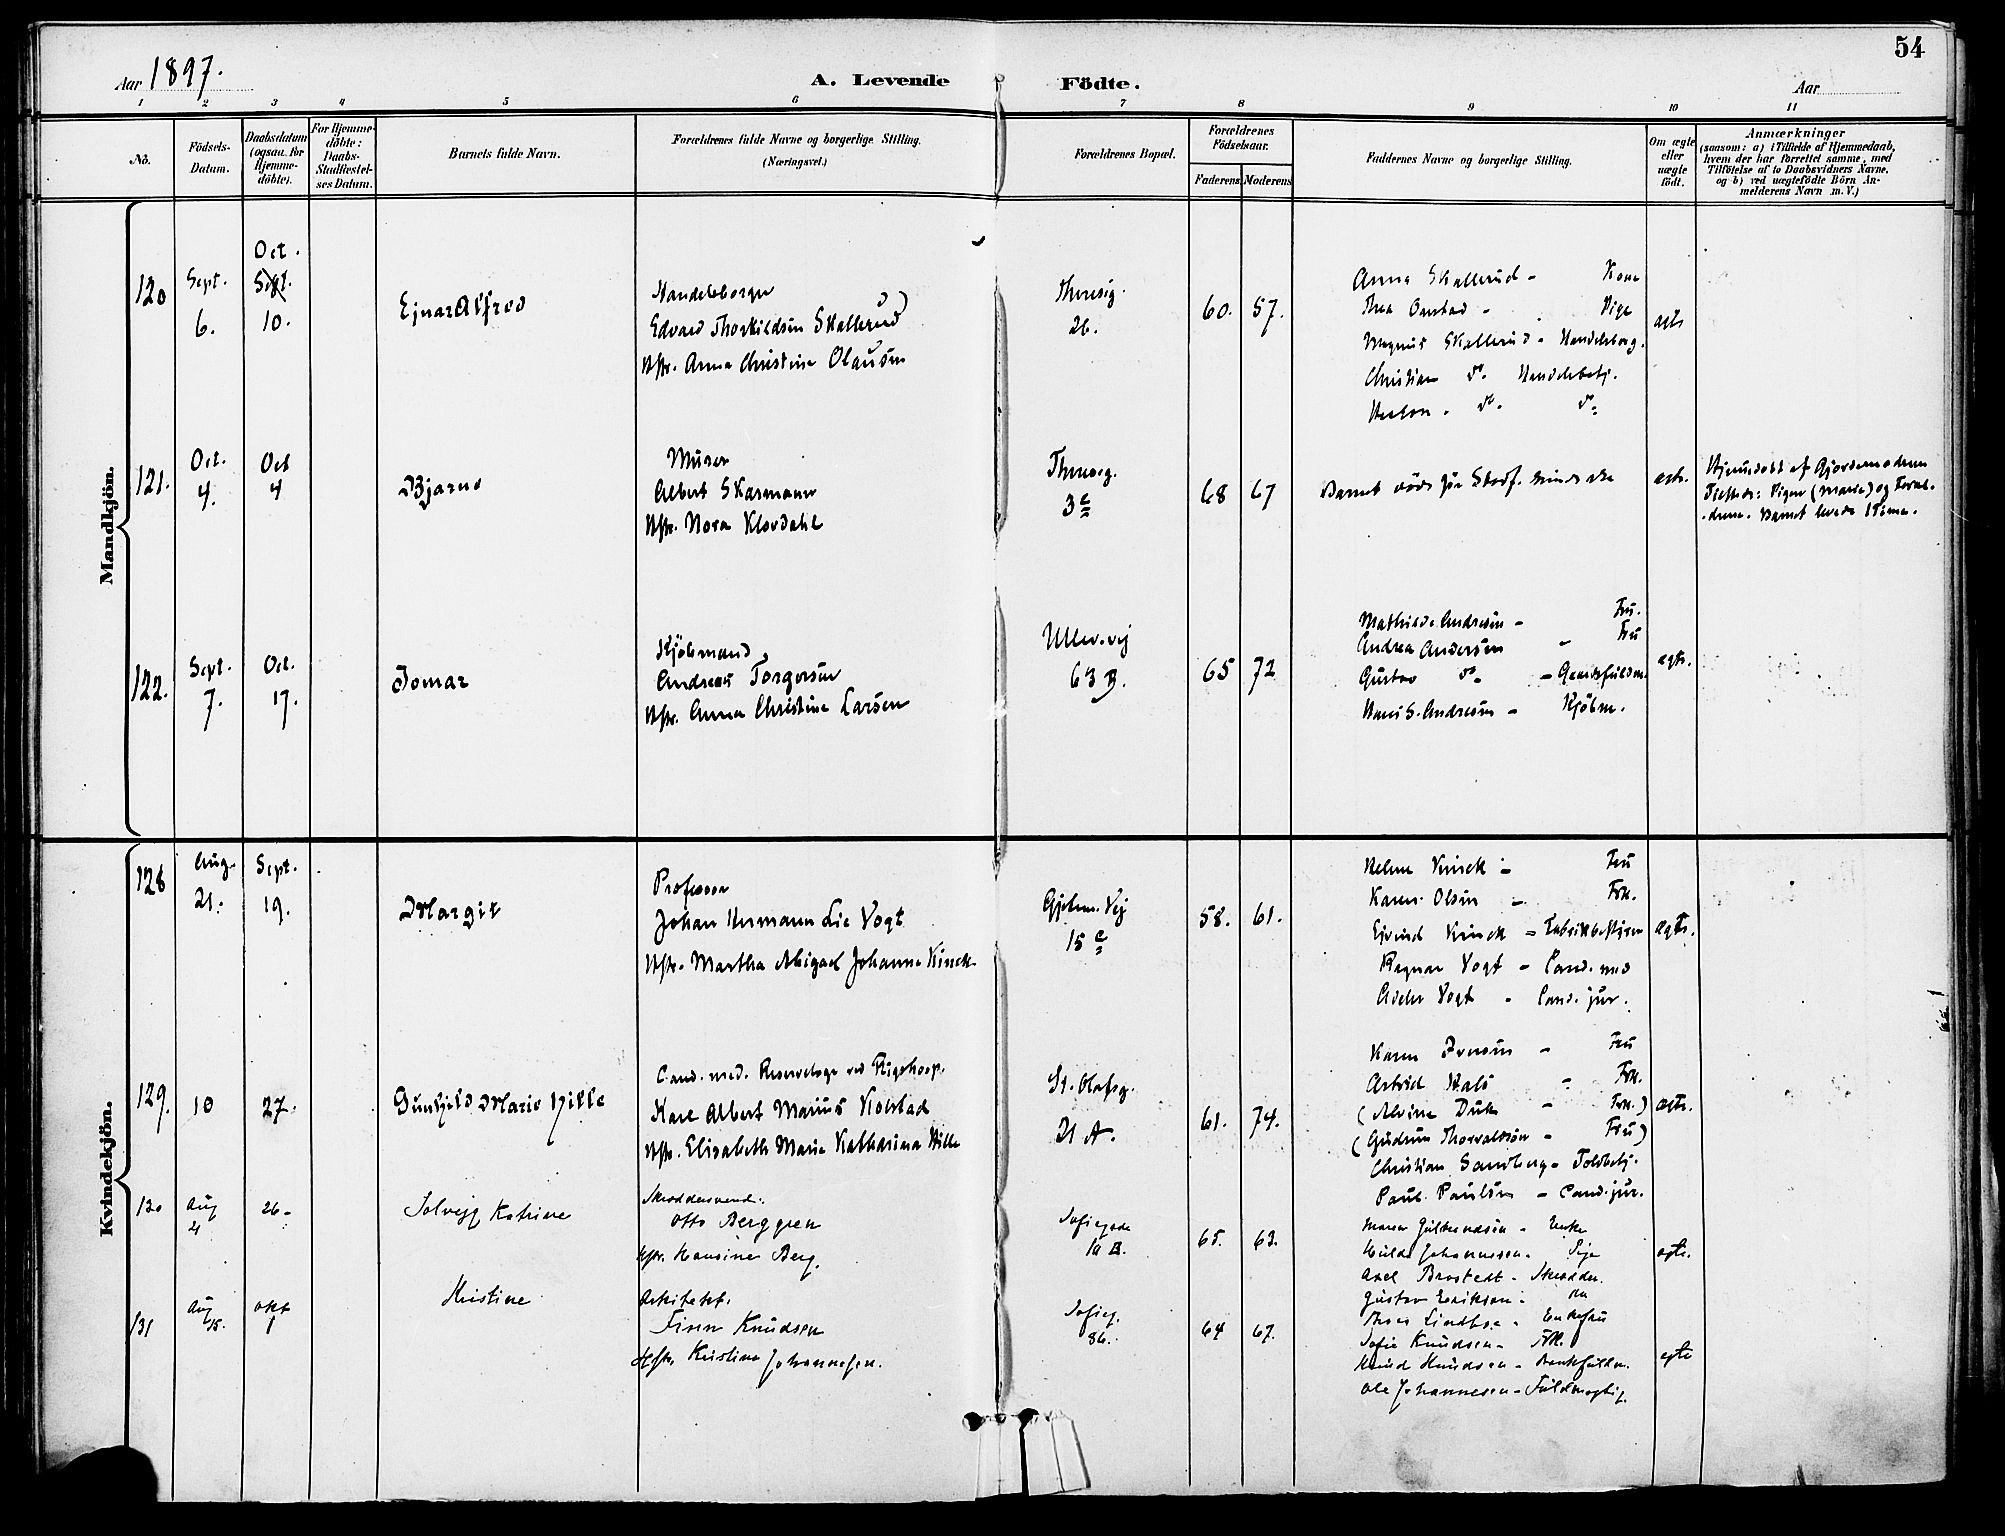 54
Aar 1897.
A. Levende Födte.
Aar
1 2 3 4 5 6 7 8 9 10 11
No.
Födsels-Datum.
Daabsdatum (ogsaa for Hjemme-döbte).
For Hjemme-döbte: Daabs-Stadfæstel-ses Datum.
Barnets fulde Navn.
Forældrenes fulde Navne og borgerlige Stilling.
(Næringsvei.)
Forældrenes Bopæl.
Forældrenes Födselsaar.
Faderens Moderens
Faddernes Navne og borgerlige Stilling.
Om ægte eller uægte födt.
Anmærkninger
(saasom: a) i Tilfælde af Hjemmedaab,
hvem der har forrettet samme, med
Tilföielse af to Daabsvidners Navne,
og b) ved uægtefödte Börn An-
melderens Navn m. V.)
Mandkjön.
120
Sept. 6.
Oct. Sept. 10.
Ejnar Alfred
Handelsborger
Edvard Thorkildsen Skallerud
Hstr. Anna Christine Olausen
Theresig. 26.
60. 57.
Anna Skallerud - Kone
Thea Onstad - Pige
Magnus Skallerud - Handelsborg.
Christian do. Handelsbetj.
Haakon - do. do.
ægte
121.
Oct. 4.
Oct 4
Bjarne
Murer
Albert Skarmann
Hstr. Nora Klovdahl
Theresesg. 3 c
68 67
Barnet döde för Stadf.
ægte.
Hjemdöbt af Gjordemoderen
Barnet levede 1 Time.
122.
Sept. 7.
Oct. 17.
Jomar
Kjöbmand
Andreas Torgersen
Hstr. Anna Christine Larsen
Ullev.vej 63 B.
65 72
Mathilde Andresen - Fru.
Andrea Andersen - Fru
Gustav do.
Hans S. Andresen - Kjöbm.
ægte.
Kvindekjön.
128
Aug. 21.
Sept. 19.
Margit
Professor
Johan Hermann Lie Vogt
Hstr. Martha Abigael Johanne Kinck
Gjetem. Vej 15 c
58. 61.
Helene Kinck - Fru
Karen Olsen - Frk.
Ejvind Kinck - Fabrikbestyrer
Ragnar Vogt - Cand. med
Vogt - Cand. jur.
ægte.
129.
10
27.
Gunhild Marie Hille
Cand. med. Reservelæge ved Rigshosp.
Karl Albert Marius Kolstad
Hstr. Elisabeth Marie Katharina Hille
St. Olafsg. 21 A.
61. 74.
Karen Iversen - Fru
Astrid Hals - Frk.
(Alvine Due - Frk.)
(Gudrun Thorvaldsen - Fru)
Christian Sandberg - Toldbetj.
Paul Paulsen - Cand. jur.
ægte.
130
Aug 4
26.
Solvejg Katrine
Skræddersvend.
Otto Berggren
Hstr. Hansine Berg.
Sofiegade 10 B.
65. 63.
Maren Gulbrandsen - Enke
Hulda Johannessen - Pige
Axel Brostedt - Skrædder.
Gustav Eriksen - do
ægte.
131
Aug 18.
Okt 1
Kristine
Arkitekt.
Finn Knudsen
Hstr. Kristine Johannesen.
Sofieg. 86.
64 67.
Thora Lindboe - Enkefru
Sofie Knudsen - Frk.
Knud Knudsen - Bankfuldm.
Ole Johannesen - Fuldmægtig.
ægte